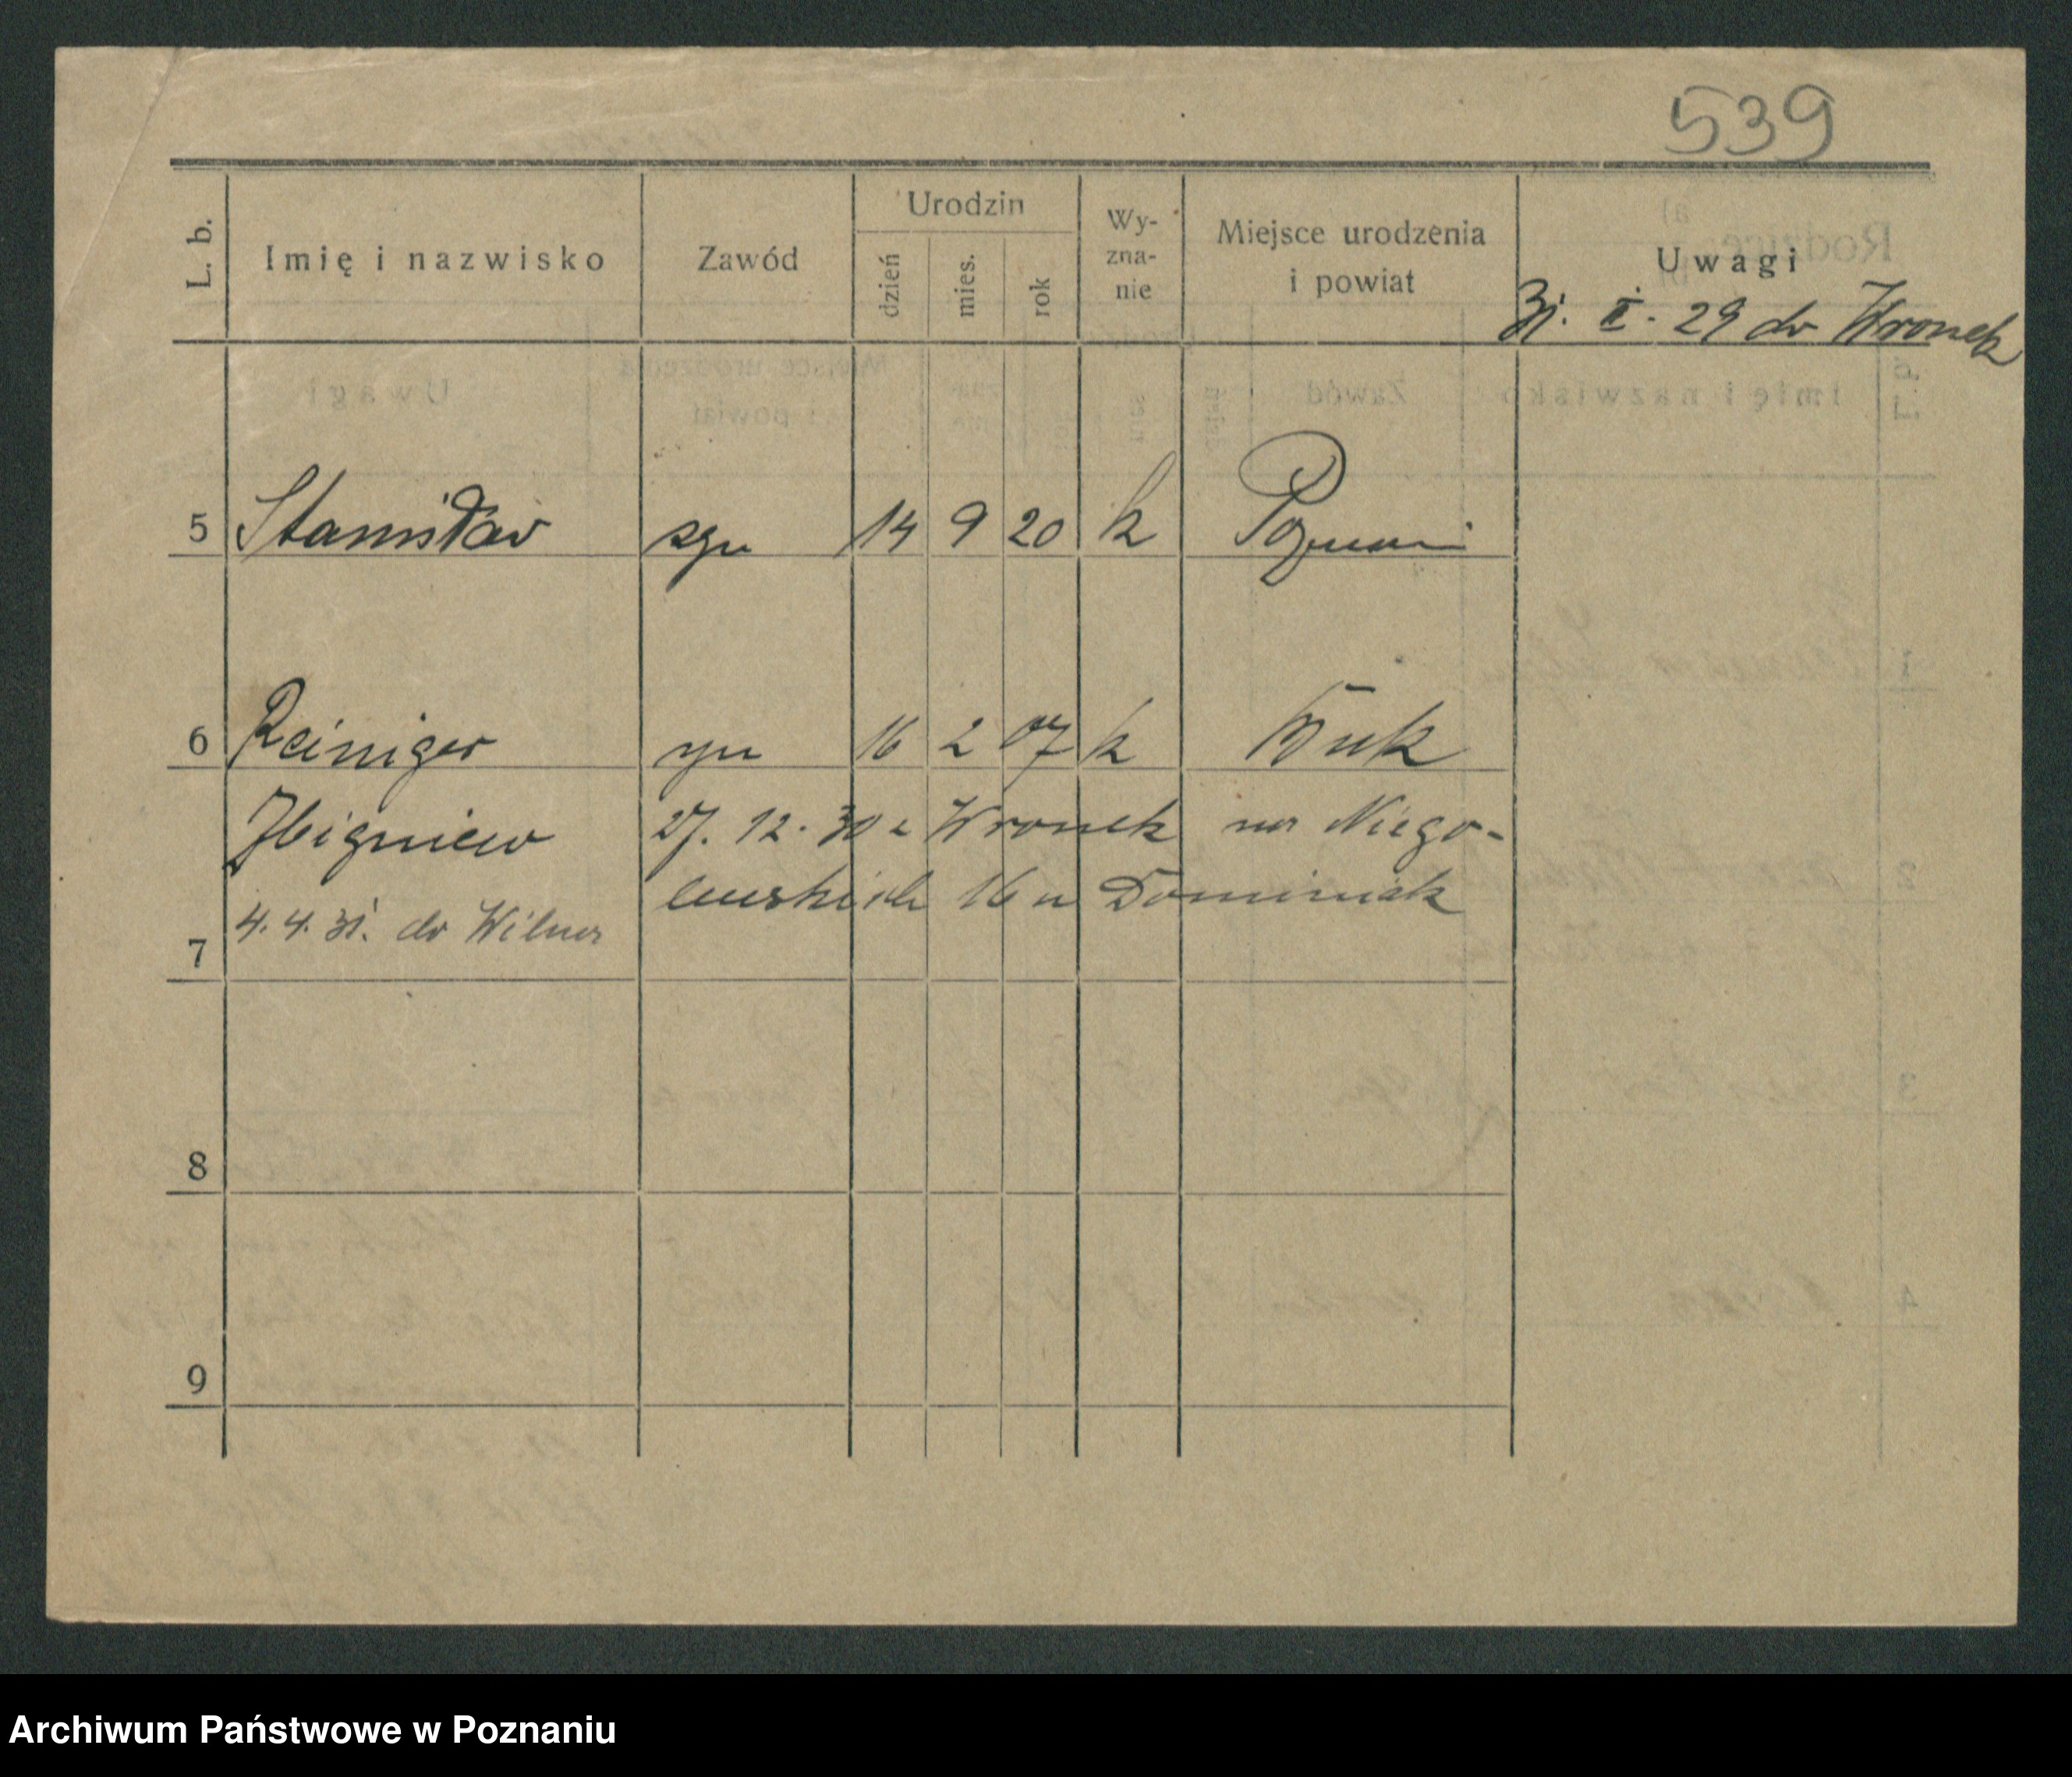 539
L. b. Imię i nazwisko Zawód Urodzin dzień mies. rok Wy-zna-nie Miejsce urodzenia i powiat Uwagi
31. I. 29 do Wronek
5 Stanisław syn 14 9 20 k Poznań
6 Reiniger syn 16 2 07 k Buk
Zbigniew 27. 12. 30 z Wronek na Niego-
lewskich 16 u Dominiak
4. 4. 31. do Wilna
7
8
9
Archiwum Państwowe w Poznaniu